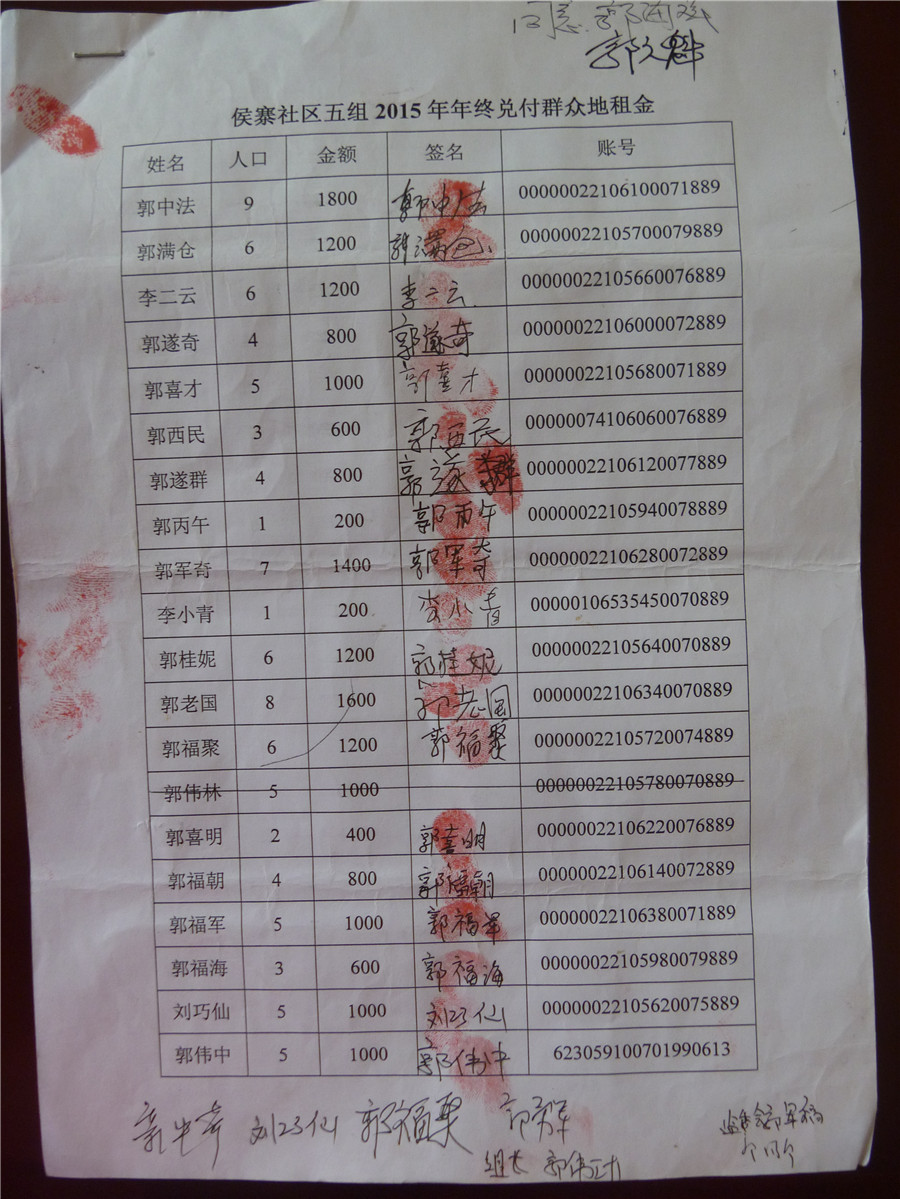 同意 郭
郭文魁
侯寨社区五组 2015 年年终兑付群众地租金
姓名 人口 金额 签名 账号
郭中法 9 1800 郭中法 00000022106100071889
郭满仓 6 1200 郭满仓 00000022105700079889
李二云 6 1200 李二云 00000022105660076889
郭遂奇 4 800 郭遂奇 00000022106000072889
郭喜才 5 1000 郭喜才 00000022105680071889
郭西民 3 600 郭西民 00000074106060076889
郭遂群 4 800 郭遂群 00000022106120077889
郭丙午 1 200 郭丙午 00000022105940078889
郭军奇 7 1400 郭军奇 00000022106280072889
李小青 1 200 李小青 00000106535450070889
郭桂妮 6 1200 郭桂妮 00000022105640070889
郭老国 8 1600 郭老国 00000022106340070889
郭福聚 6 1200 郭福聚 00000022105720074889
郭伟林 5 1000 00000022105780070889
郭喜明 2 400 郭喜明 00000022106220076889
郭福朝 4 800 郭福朝 00000022106140072889
郭福军 5 1000 郭福军 00000022106380071889
郭福海 3 600 郭福海 00000022105980079889
刘巧仙 5 1000 刘巧仙 00000022105620075889
郭伟中 5 1000 郭伟中 623059100701990613
刘巧仙 郭福聚
组长 郭伟